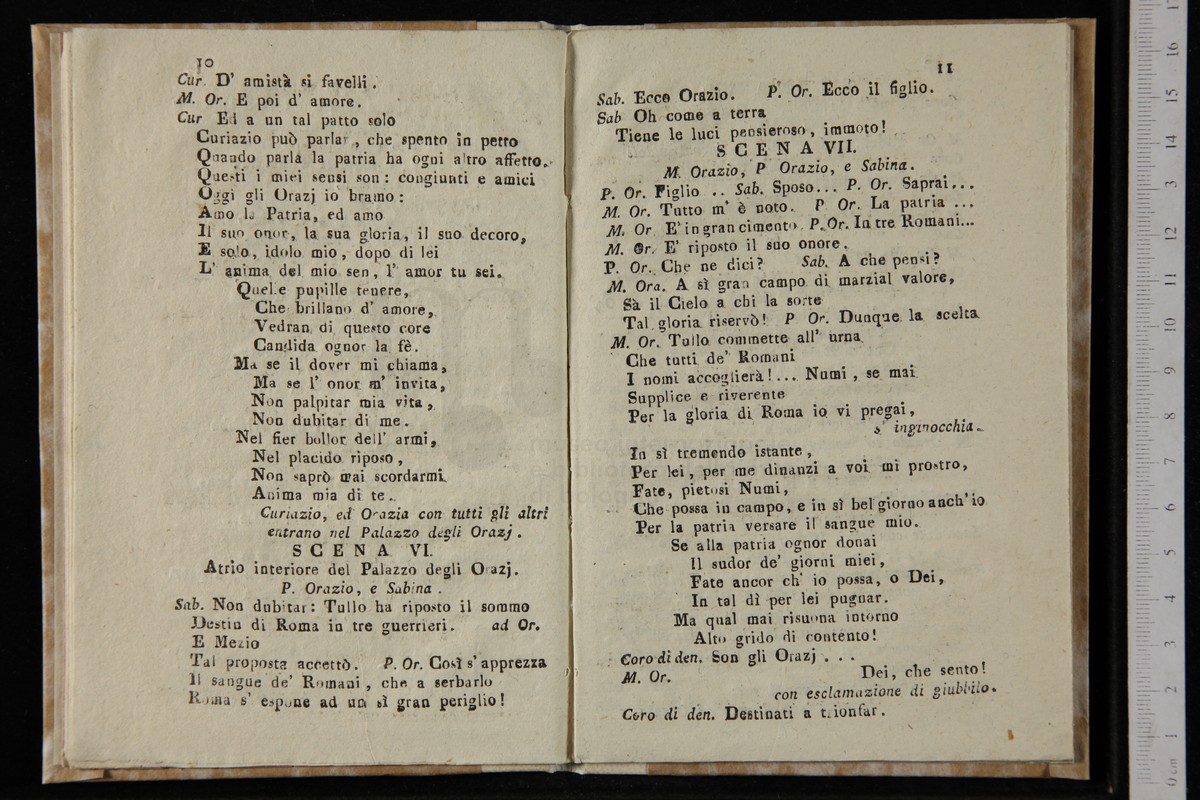 10
Cur. D' amistà si favelli.
M. Or. E poi d' amore.
Cur Ed a un tal patto solo
Curiazio può parlar, che spento in petto
Quando parla la patria ha ogni altro affetto.
Questi i miei sensi son: congiunti e amici
Oggi gli Orazj io bramo:
Amo la Patria, ed amo
Il suo onor, la sua gloria, il suo decoro,
E solo, idolo mio, dopo di lei
L' anima del mio sen, l' amor tu sei.
Quelle pupille tenere,
Che brillano d' amore,
Vedran di questo core
Candida ognor la fè.
Ma se il dover mi chiama,
Ma se l' onor m' invita,
Non palpitar mia vita,
Non dubitar di me.
Nel fier bollor dell' armi,
Nel placido riposo,
Non saprò mai scordarmi
Anima mia di te.
Curiazio, ed Orazia con tutti gli altri
entrano nel Palazzo degli Orazj.
SCENA VI.
Atrio interiore del Palazzo degli Orazj.
P. Orazio, e Sabina.
Sab. Non dubitar: Tullo ha riposto il sommo
Destin di Roma in tre guerrieri. ad Or.
E Mezio
Tal proposta accettò. P. Or. Così s' apprezza
Il sangue de' Romani, che a serbarlo
Roma s' espone ad un sì gran periglio!
11
Sab. Ecco Orazio. P. Or. Ecco il figlio.
Sab Oh come a terra
Tiene le luci pensieroso, immoto!
SCENA VII.
M. Orazio, P Orazio, e Sabina.
P. Or. Figlio .. Sab. Sposo... P. Or. Saprai...
M. Or. Tutto m' è noto. P Or. La patria ...
M. Or E' in gran cimento. P. Or. In tre Romani...
M. Or. E' riposto il suo onore.
P. Or. Che ne dici? Sab. A che pensi?
M. Ora. A sì gran campo di marzial valore,
Sà il Cielo a chi la sorte
Tal gloria riservò! P Or. Dunque la scelta
M. Or. Tullo commette all' urna
Che tutti de' Romani
I nomi accoglierà!... Numi, se mai
Supplice e riverente
Per la gloria di Roma io vi pregai,
s' inginocchia.
In sì tremendo istante,
Per lei, per me dinanzi a voi mi prostro,
Fate, pietosi Numi,
Che possa in campo, e in sì bel giorno anch' io
Per la patria versare il sangue mio.
Se alla patria ognor donai
Il sudor de' giorni miei,
Fate ancor ch' io possa, o Dei,
In tal dì per lei pugnar.
Ma qual mai risuona intorno
Alto grido di contento!
Coro di den. Son gli Orazj . . .
M. Or. Dei, che sento!
con esclamazione di giubbilo.
Coro di den. Destinati a trionfar.